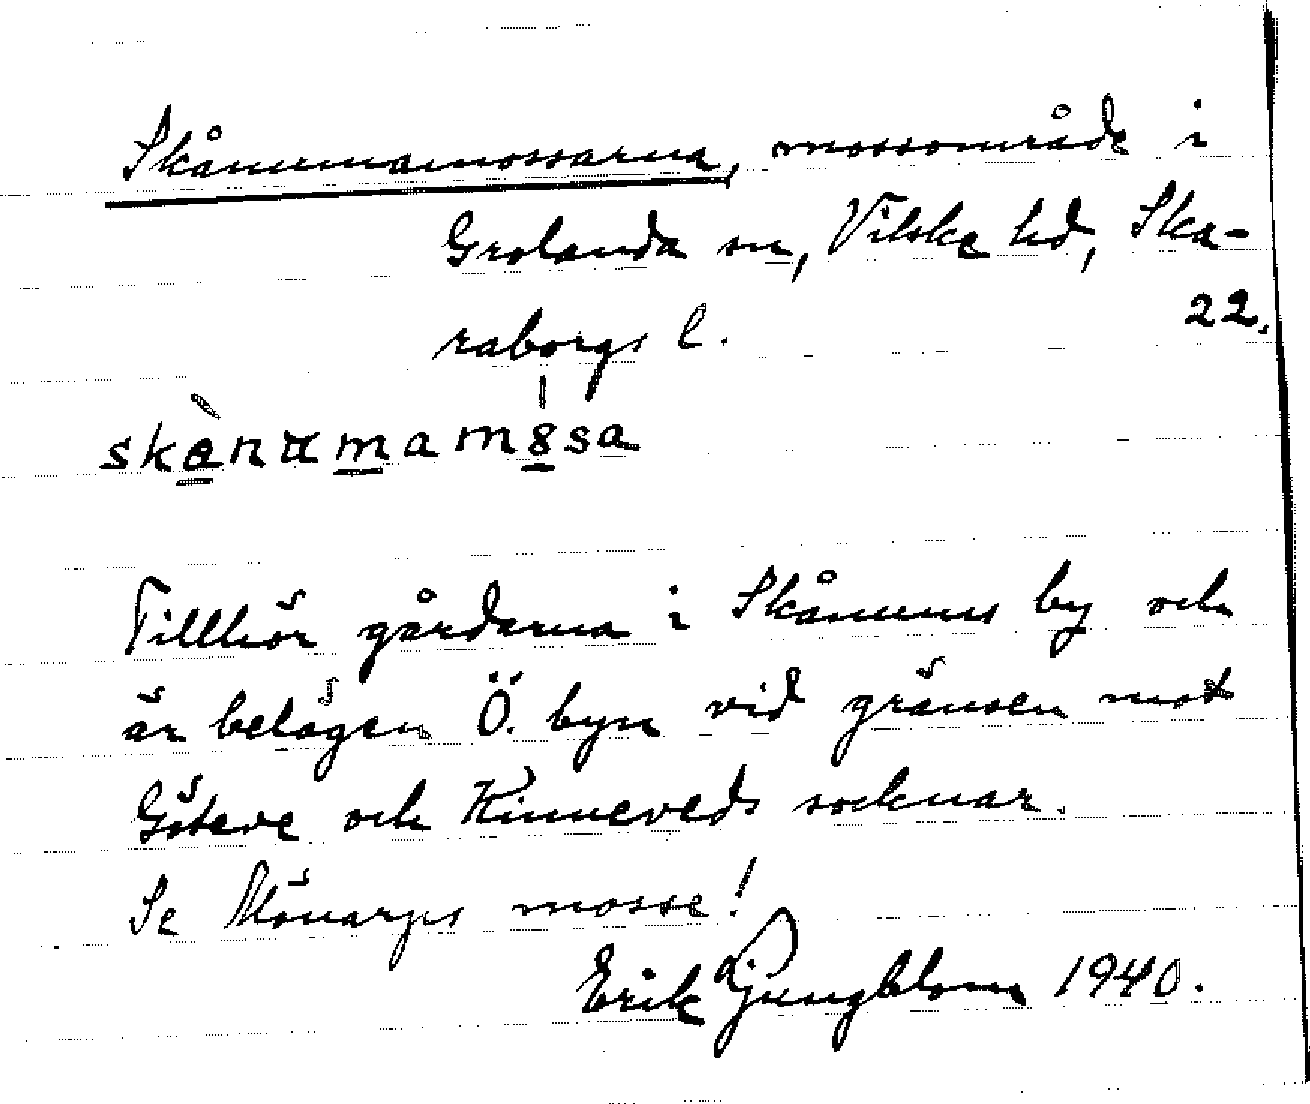 Skånummamossarna, mossområde i
Grolanda sn, Vilske hd, Ska-
raborgs l. 22.
Tillhör gårdarna i Skånums by och
är belägen Ö. byn vid gränsen mot
Göteve och Kinneveds socknar.
Se Mönarps mosse!
Erik Ljungblom 1940.